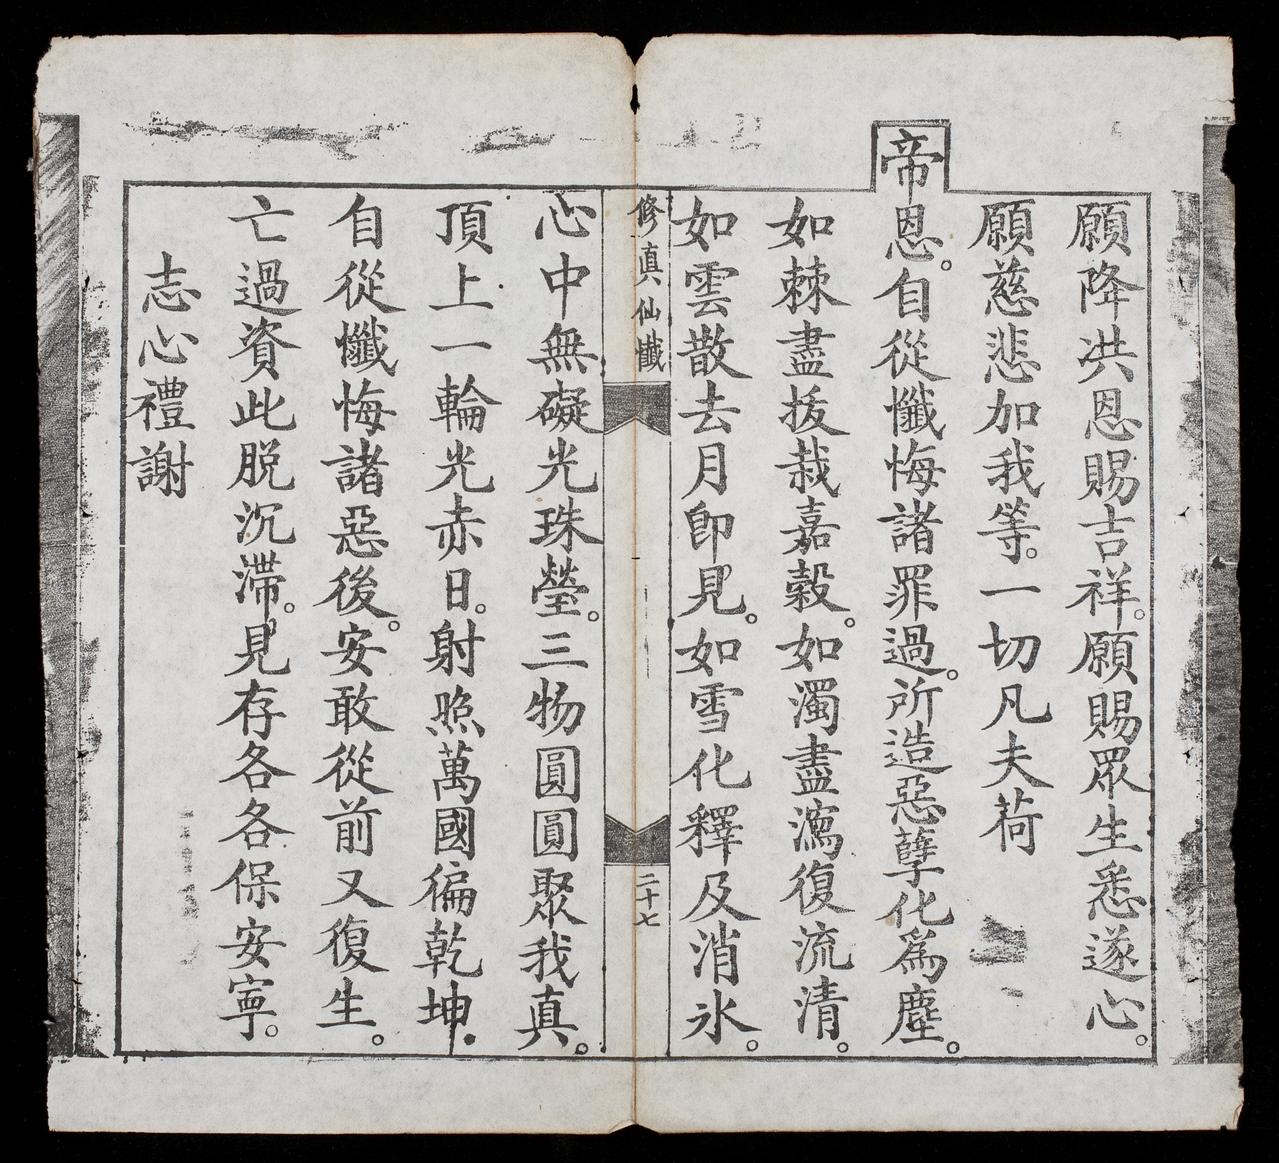 願降洪恩賜吉祥。願賜眾生悉遂心。
願慈悲加我等。一切凡夫荷
帝恩。自從懺悔諸罪過。所造惡孽化為塵。
如棘盡拔栽嘉穀。如濁盡瀉復流清。
如雲散去月即見。如雪化釋及消氷。
修真仙懺
二十七
心中無礙光珠瑩。三物圓圓聚我真。
頂上一輪光赤日。射照萬國徧乾坤。
自從懺悔諸惡後。安敢從前又復生。
亡過資此脫沉滯。見存各各保安寧。
志心禮謝